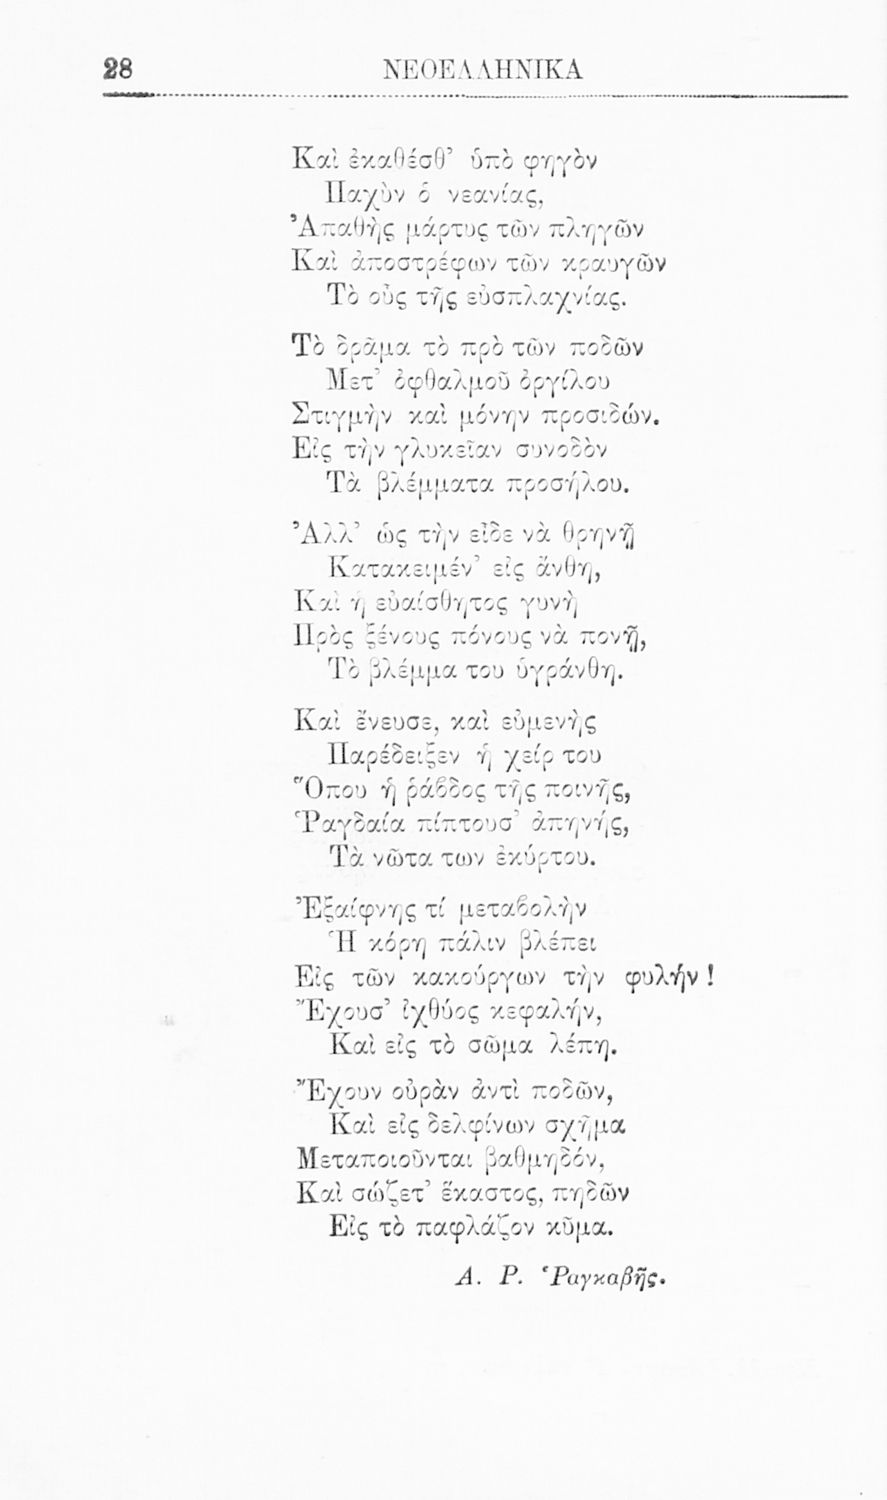 28 ΝΕΟΕΛΛΗΝΙΚΑ
Καὶ ἐκαθέσθ’ ὑπὸ φηγὸν
Παχὺν ὁ νεανίας,
Ἀπαθὴς μάρτυς τῶν πληγῶν
Καὶ ἀποστρέφων τῶν κραυγῶν
Τὸ οὖς τῆς εὐσπλαχνίας.
Τὸ δρᾶμα τὸ πρὸ τῶν ποδῶν
Μετ’ ὀφθαλμοῦ ὀργίλου
Στιγμὴν καὶ μόνην προσιδών.
Εἰς τὴν γλυκεῖαν συνοδὸν
Τὰ βλέμματα προσήλου.
Ἀλλ’ ὡς τὴν εἶδε νὰ θρηνῇ
Κατακειμέν’ εἰς ἄνθη,
Καὶ ἡ εὐαίσθητος γυνὴ
Πρὸς ξένους πόνους νὰ πονῇ,
Τὸ βλέμμα του ὑγράνθη.
Καὶ ἔνευσε, καὶ εὐμενὴς
Παρέδειξεν ἡ χείρ του
Ὅπου ἡ ῥάβδος τῆς ποινῆς,
Ῥαγδαία πίπτουσ’ ἀπηνής,
Τὰ νῶτα των ἐκύρτου.
Ἐξαίφνης τί μεταβολὴν
Ἡ κόρη πάλιν βλέπει
Εἰς τῶν κακούργων τὴν φυλήν!
Ἔχουσ’ ἰχθύος κεφαλήν,
Καὶ εἰς τὸ σῶμα λέπη.
Ἔχουν οὐρὰν ἀντὶ ποδῶν,
Καὶ εἰς δελφίνων σχῆμα
Μεταποιοῦνται βαθμηδόν,
Καὶ σώζετ’ ἕκαστος, πηδῶν
Εἰς τὸ παφλάζον κῦμα.
Α. Ρ. Ῥαγκαβῆς.